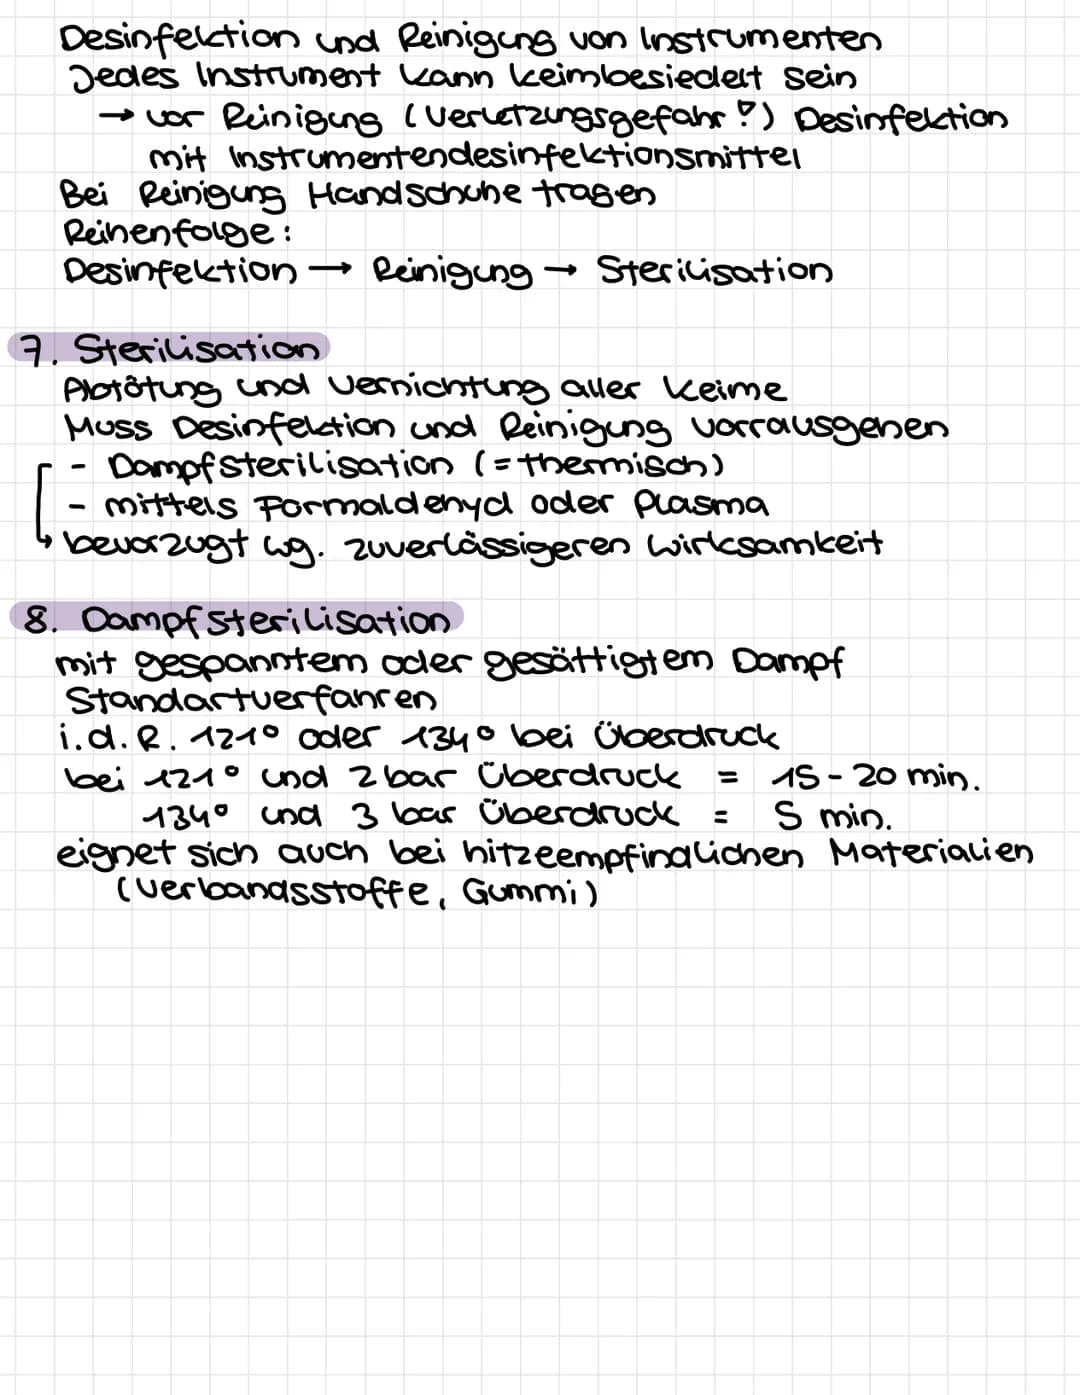 Desinfektion und Reinigung von Instrumenten
Jedes Instrument kann keimbesiedelt sein
→ vor Reinigung (Verletzungsgefahr!) Desinfektion
mit Instrumentendesinfektionsmittel
Bei Reinigung Handschuhe tragen
Reihenfolge:
Desinfektion → Reinigung → Sterilisation
7. Sterilisation
Abtötung und Vernichtung aller Keime
Muss Desinfektion und Reinigung vorrausgehen
- Dampfsterilisation (=thermisch)
- mittels Formaldehyd oder Plasma
↳ bevorzugt wg. zuverlässigeren Wirksamkeit
8. Dampfsterilisation
mit gespanntem oder gesättigtem Dampf
Standartverfahren
i.d.R. 121° oder 134° bei Überdruck
bei 121° und 2 bar Überdruck = 15-20 min.
134° und 3 bar Überdruck = 5 min.
eignet sich auch bei hitzeempfindlichen Materialien
(Verbandsstoffe, Gummi)